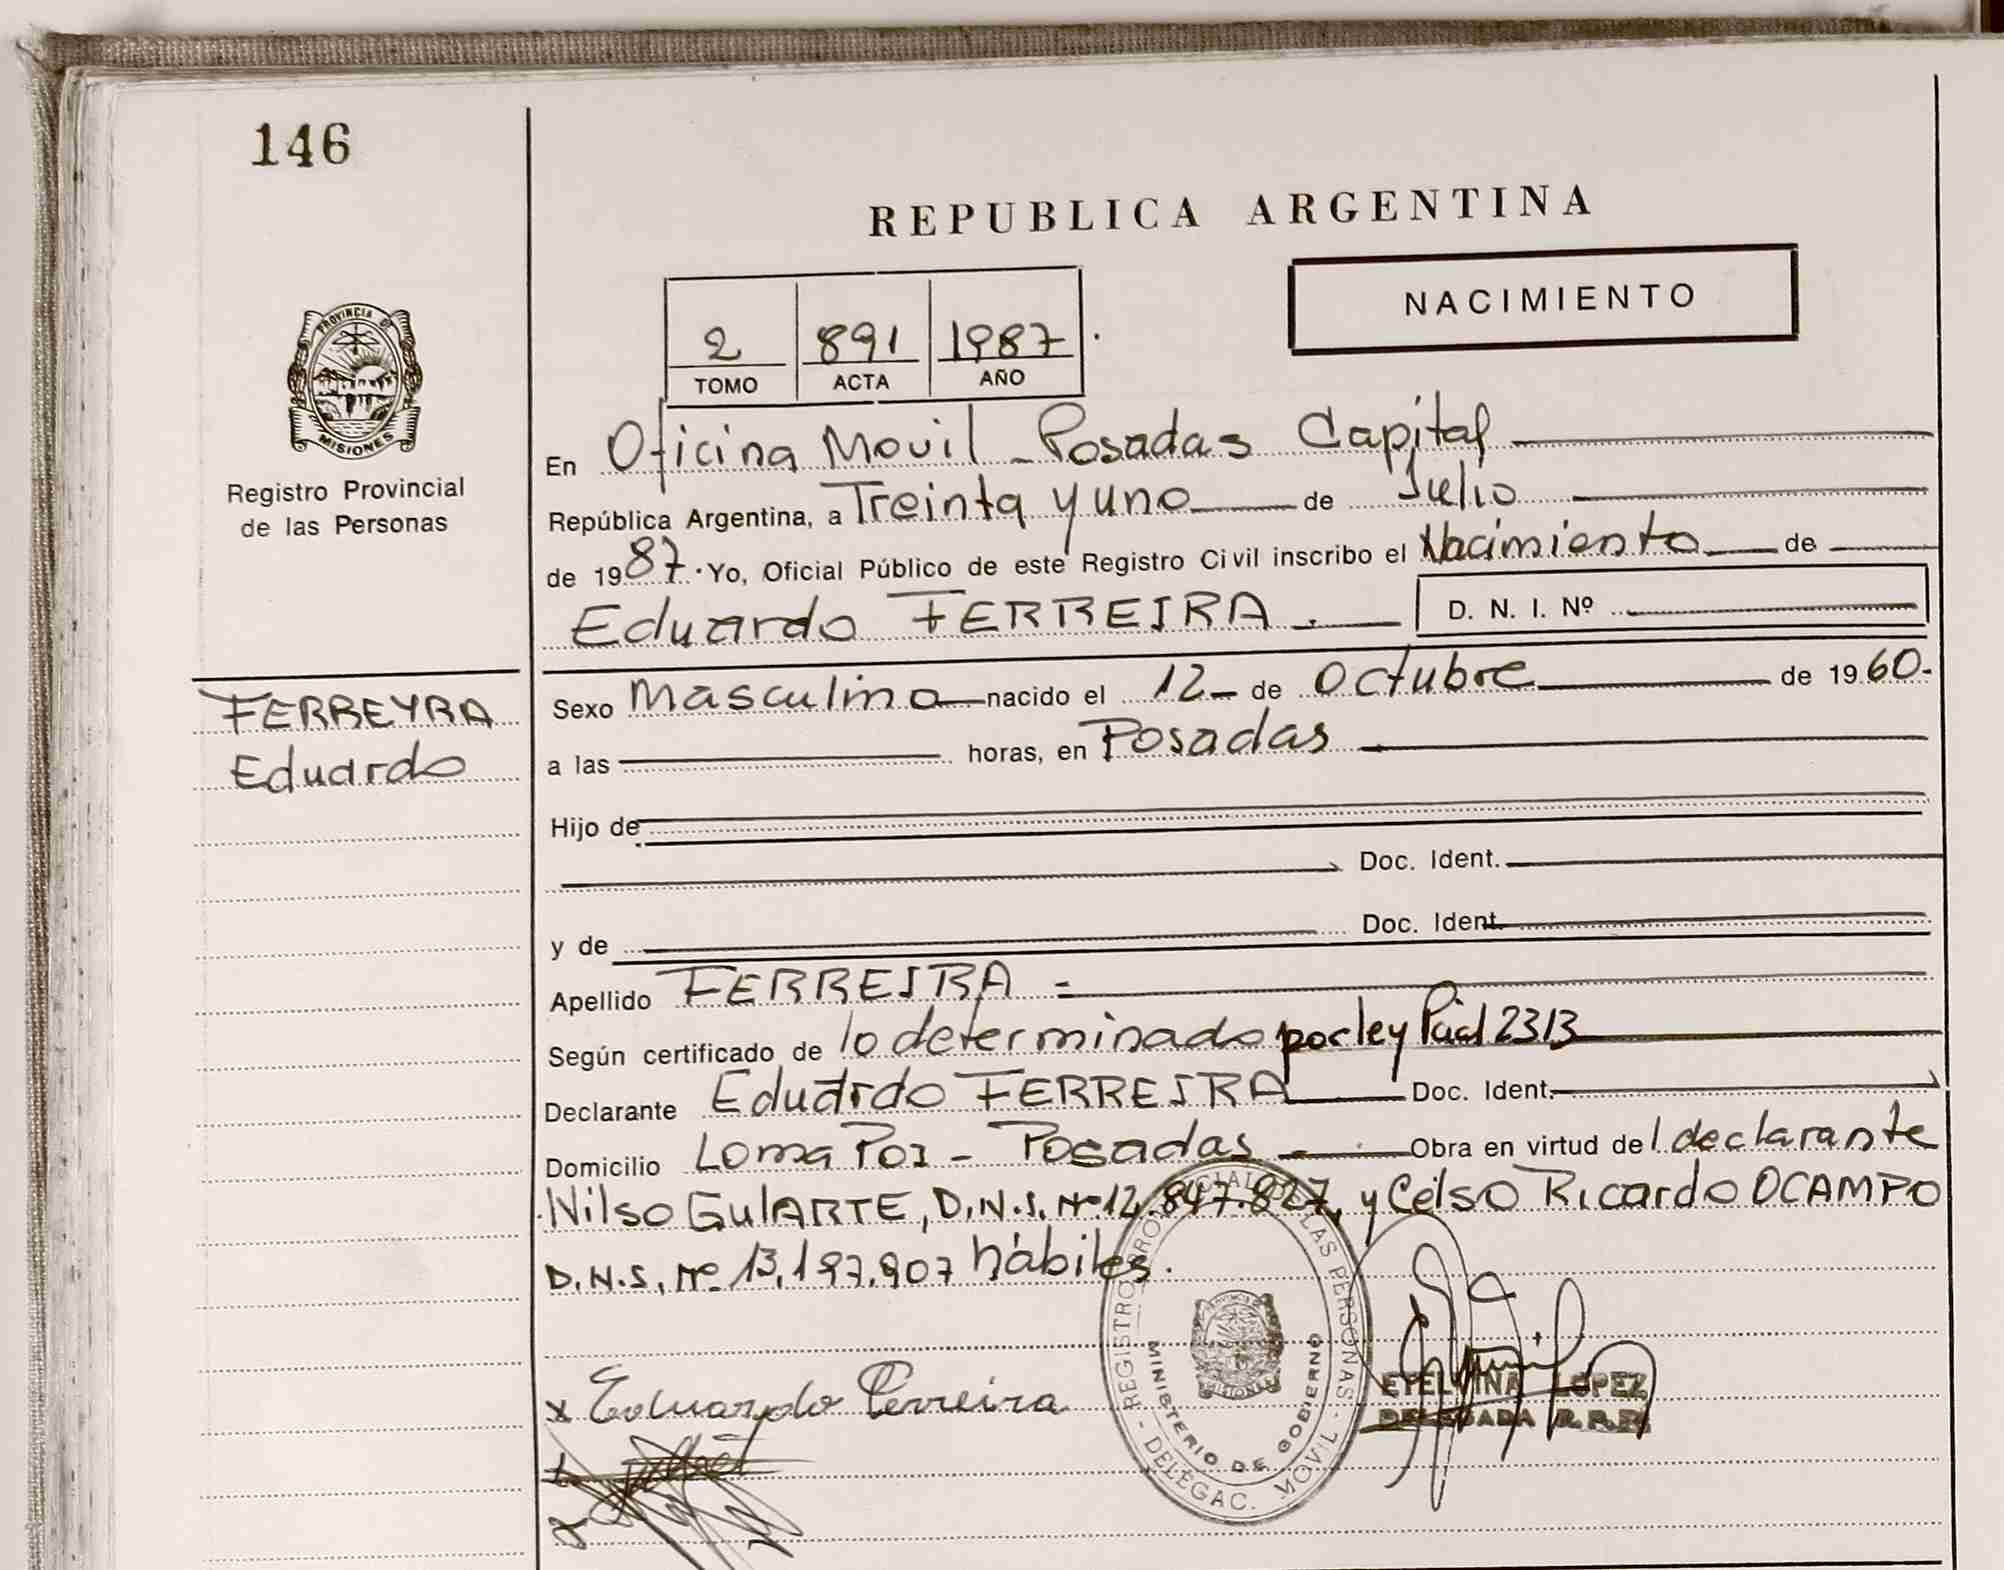 146
REPUBLICA ARGENTINA
NACIMIENTO
2 891 1987
TOMO ACTA AÑO
PROVINCIA DE
MISIONES
Registro Provincial
de las Personas
En Oficina Movil - Posadas Capital
República Argentina, a Treinta y uno de Julio
de 1987. Yo, Oficial Público de este Registro Civil inscribo el Nacimiento de
Eduardo FERREIRA. D. N. I. Nº
FERREYRA
Eduardo
Sexo Masculino nacido el 12 - de Octubre de 1960.
a las horas, en Posadas
Hijo de
Doc. Ident.
y de Doc. Ident.
Apellido FERREIRA =
Según certificado de lo determinado por ley 2313
Declarante Eduardo FERREIRA Doc. Ident.
Domicilio Loma Poi - Posadas - Obra en virtud del declarante
Nilso GulARTE, D.N.I. Nº 12.847.827, y Celso Ricardo OCAMPO
D.N.I. Nº 13.197.907 hábiles.
x Eduardo Ferreira
REGISTRO PROVINCIAL DE LAS PERSONAS - DELEGAC. MOVIL -
MINISTERIO DE GOBIERNO
MISIONES
LOPEZ
DELEGADA R.P.P.